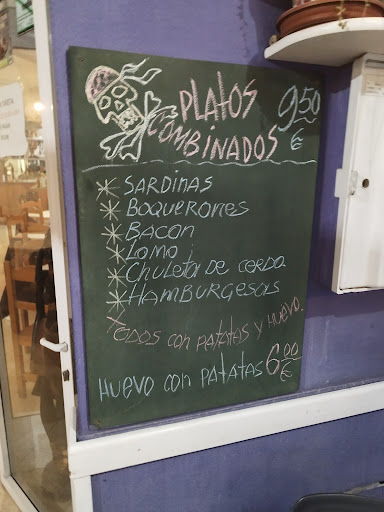 Platos 9,50
Combinados €
* Sardinas
* Boquerones
* Bacon
* Lomo
* Chuleta de cerda
* Hamburgesas
Todos con patatas y huevo.
Huevo con patatas 6,00 €